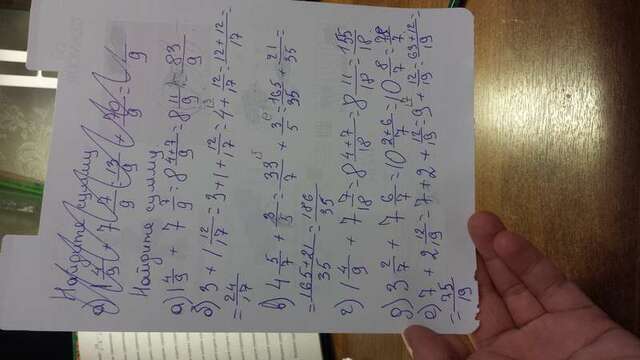 Найдите сумму
Найдите сумму
а) 1 4/9 + 7 7/9 = 8 4+7/9 = 8 11/9 = 83/9
б) 3 + 1 12/17 = 3 + 1 + 12/17 = 4 + 12/17 = 12+12/17 =
= 24/17
в) 4 5/7 + 3/5 = 33/7 + 3/5 = 165/35 + 21/35 =
= 165+21/35 = 186/35
г) 1 4/9 + 7 7/18 = 8 4+7/18 = 8 11/18 = 155/18
д) 3 2/7 + 7 6/7 = 10 2+6/7 = 10 8/7 = 78/7
е) 7 + 2 12/19 = 7 + 2 + 12/19 = 9 + 12/19 = 63+12/19 =
= 75/19